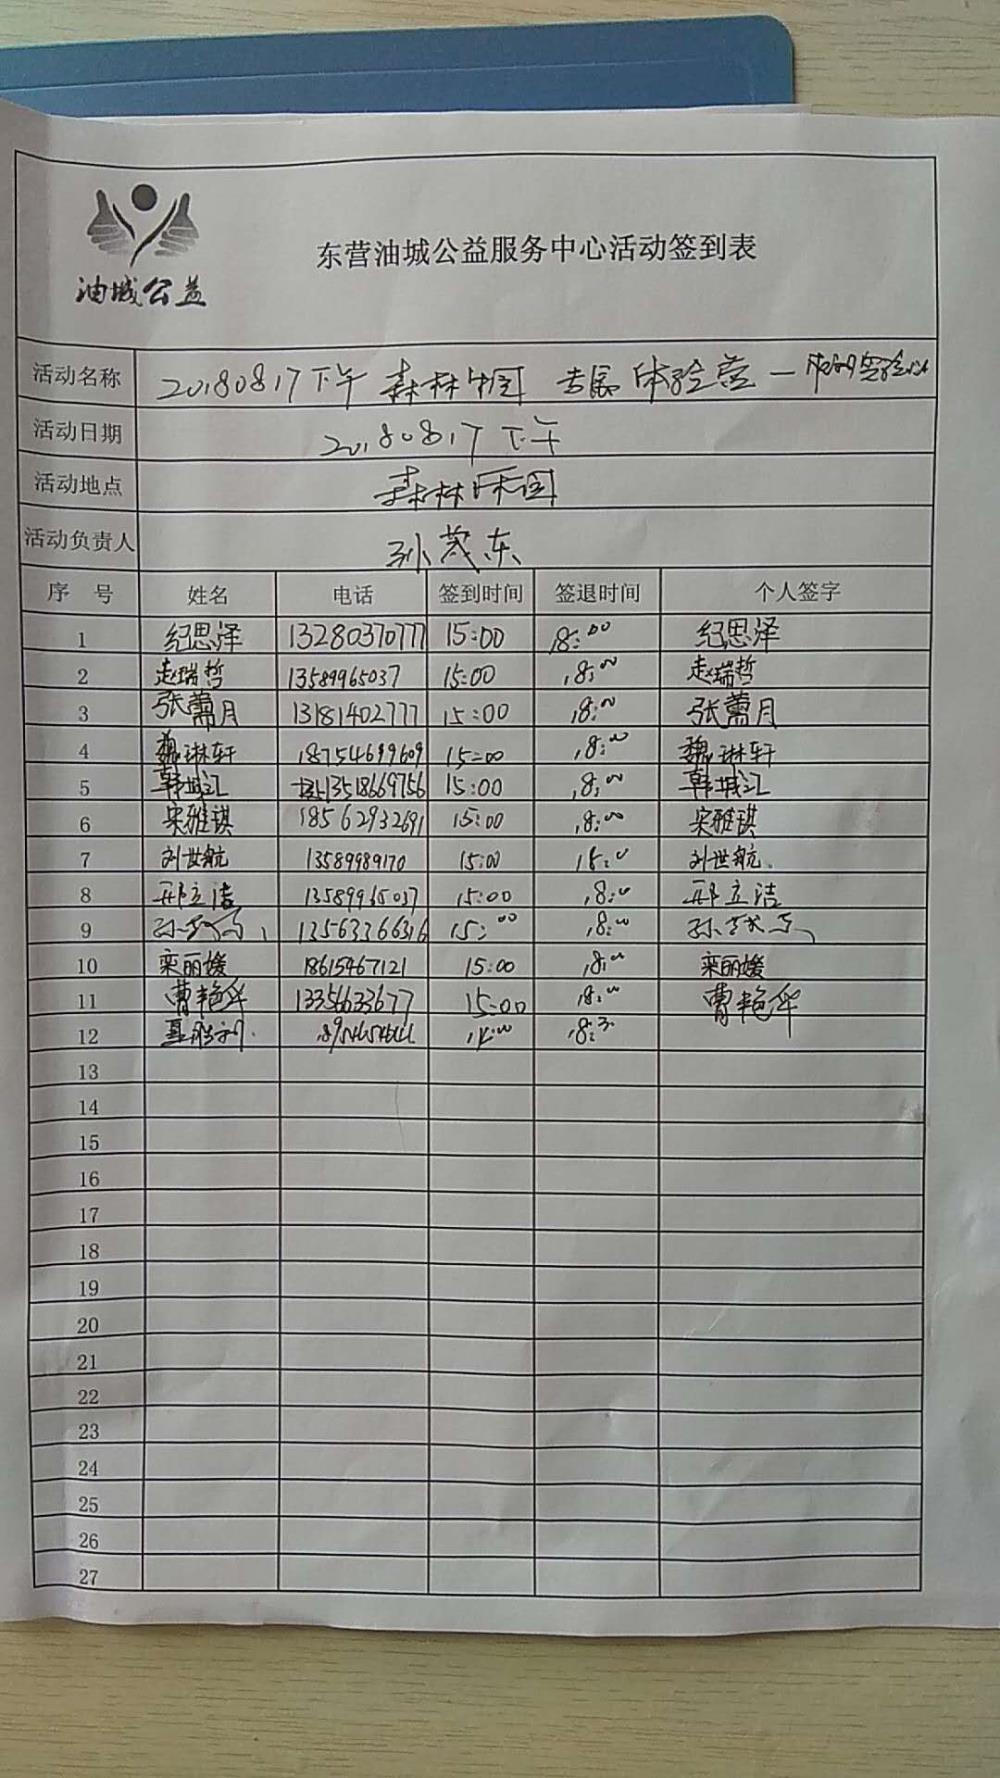 油城公益
东营油城公益服务中心活动签到表
活动名称 20180817下午 森林乐园 专属体验营一
活动日期 20180817下午
活动地点 森林乐园
活动负责人 孙茂东
序 号 姓名 电话 签到时间 签退时间 个人签字
1 纪思泽 13280370777 15:00 18:00 纪思泽
2 赵瑞哲 13589965037 15:00 18:00 赵瑞哲
3 张蕾月 13181402777 15:00 18:00 张蕾月
4 魏琳轩 18754699609 15:00 18:00 魏琳轩
5 韩城汇 13518669756 15:00 18:00 韩城汇
6 宋雅琪 18562932691 15:00 18:00 宋雅琪
7 刘世航 13589989170 15:00 18:0 刘世航
8 邢立洁 13589965037 15:00 18:00 邢立洁
9 孙茂东 13563366316 15:00 18:00 孙茂东
10 栾丽媛 18615467121 15:00 18:00 栾丽媛
11 曹艳华 13356633677 15:00 18:00 曹艳华
12 14:00 18:3
13
14
15
16
17
18
19
20
21
22
23
24
25
26
27